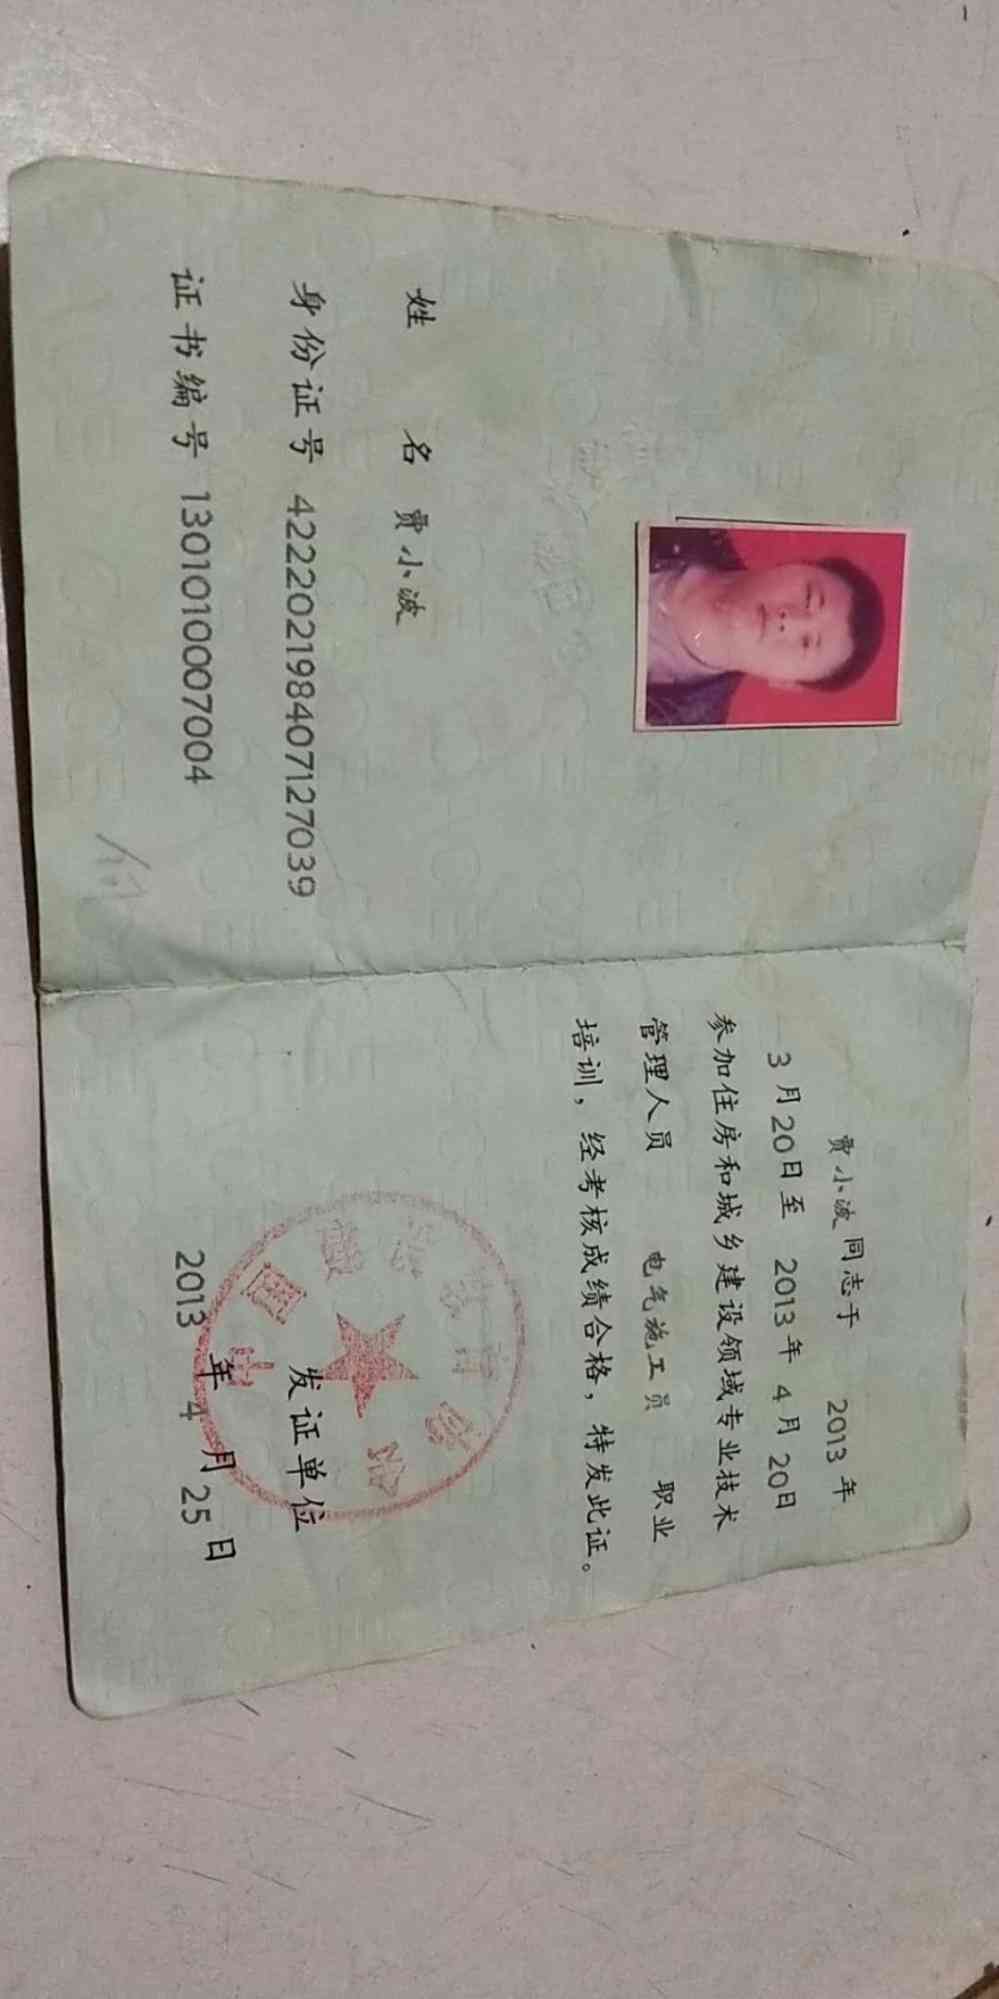 姓 名 贾小波
身份证号 422202198407127039
证书编号 1301010007004
贾小波 同志于 2013 年
3 月 20 日至 2013 年 4 月 20 日
参加住房和城乡建设领域专业技术
管理人员 电气施工员 职业
培训，经考核成绩合格，特发此证。
发证单位
2013 年 4 月 25 日